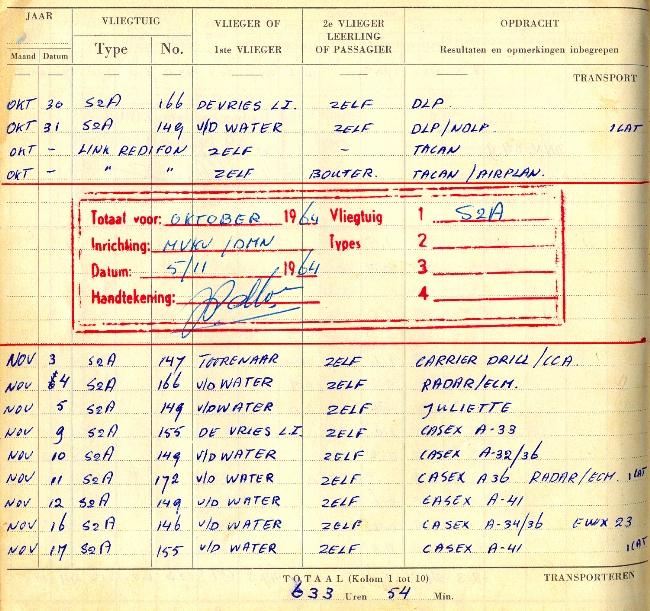 JAAR VLIEGTUIG VLIEGER OF 2e VLIEGER OPDRACHT
LEERLING
Maand Datum Type No. 1ste VLIEGER OF PASSAGIER Resultaten en opmerkingen inbegrepen
TRANSPORT
OKT 30 S2A 166 DE VRIES L.I. ZELF DLP.
OKT 31 S2A 149 v/D WATER ZELF DLP/NDLP 1 LAT
OKT - LINK REDIFON ZELF - TACAN
OKT - " " ZELF BOUTER. TACAN / AIRPLAN.
Totaal voor: OKTOBER 1964 Vliegtuig 1 S2A
Inrichting: MVKV / DMN Types 2
Datum: 5/11 1964 3
Handtekening: 4
NOV 3 S2A 147 TOORENAAR ZELF CARRIER DRILL / CCA.
NOV 4 S2A 166 v/D WATER ZELF RADAR/ECM.
NOV 5 S2A 149 v/D WATER ZELF JULIETTE
NOV 9 S2A 155 DE VRIES L.I. ZELF CASEX A-33
NOV 10 S2A 149 v/D WATER ZELF CASEX A-32/36
NOV 11 S2A 172 v/D WATER ZELF CASEX A36 RADAR/ECM. 1 LAT
NOV 12 S2A 149 v/D WATER ZELF CASEX A-41
NOV 16 S2A 146 v/D WATER ZELF CASEX A-34/36 EWX 23
NOV 17 S2A 155 v/D WATER ZELF CASEX A-41 1 LAT
TOTAAL (Kolom 1 tot 10) TRANSPORTEREN
633 Uren 54 Min.